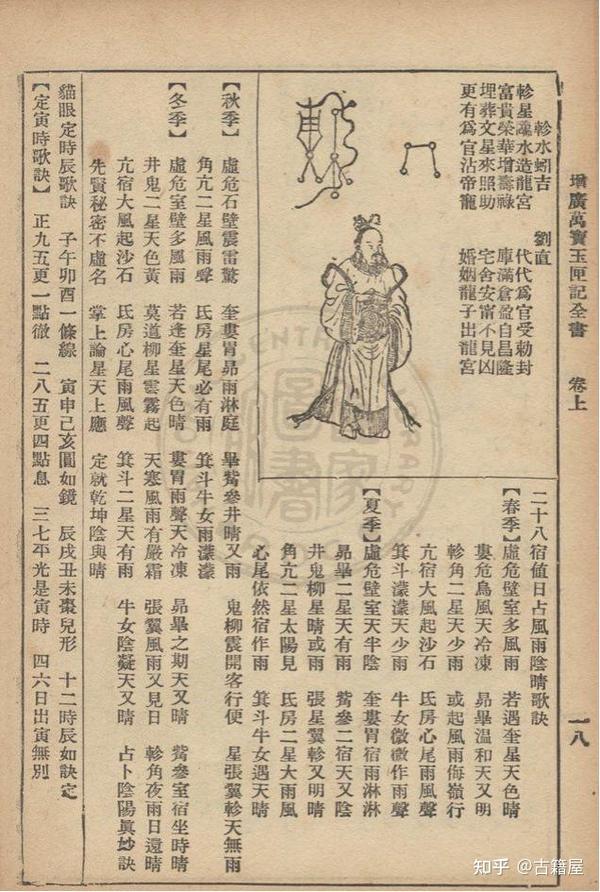 增廣萬寶玉匣記全書 卷上 一八
軫水蚓吉 劉直
軫星臨水造龍宮 代代爲官受勅封
富貴榮華增壽祿 庫滿倉盈自昌隆
埋葬文星來照助 宅舍安甯不見凶
更有爲官沾帝寵 婚姻龍子出龍宮
二十八宿値日占風雨陰晴歌訣
【春季】虛危室壁多風雨 若遇奎星天色晴
婁危烏風天冷凍 昴畢温和天又明
軫角二星天少雨 或起風雨侮嶺行
亢宿大風起沙石 氐房心尾雨風聲
箕斗濛濛天少雨 牛女微微作雨聲
【夏季】虛危壁室天半陰 奎婁胃宿雨淋淋
昴畢二星天有雨 觜參二宿天又陰
井鬼柳星晴或雨 張星翼軫又明晴
角亢二星太陽見 氐房二星大雨風
心尾依然宿作雨 箕斗牛女遇天晴
【秋季】虛危石壁震雷驚 奎婁胃昴雨淋庭 畢觜參井晴又雨 鬼柳震開客行便 星張翼軫天無雨
角亢二星風雨聲 氐房星尾必有雨 箕斗牛女雨濛濛
【冬季】虛危室壁多風雨 若逢奎星天色晴 婁胃雨聲天冷凍 昴畢之期天又晴 觜參室宿坐時晴
井鬼二星天色黃 莫道柳星雲霧起 天寒風雨有嚴霜 張翼風雨又見日 軫角夜雨日還晴
亢宿大風起沙石 氐房心尾雨風聲 箕斗二星天有雨 牛女陰凝天又晴 占卜陰陽眞妙訣
先賢秘密不虛名 掌上論星天上應 定就乾坤陰與晴
貓眼定時辰歌訣 子午卯酉一條線 寅申己亥圓如鏡 辰戌丑未棗兒形 十二時辰如訣定
【定寅時歌訣】 正九五更一點徹 二八五更四點息 三七平光是寅時 四六日出寅無別
知乎 @古籍屋